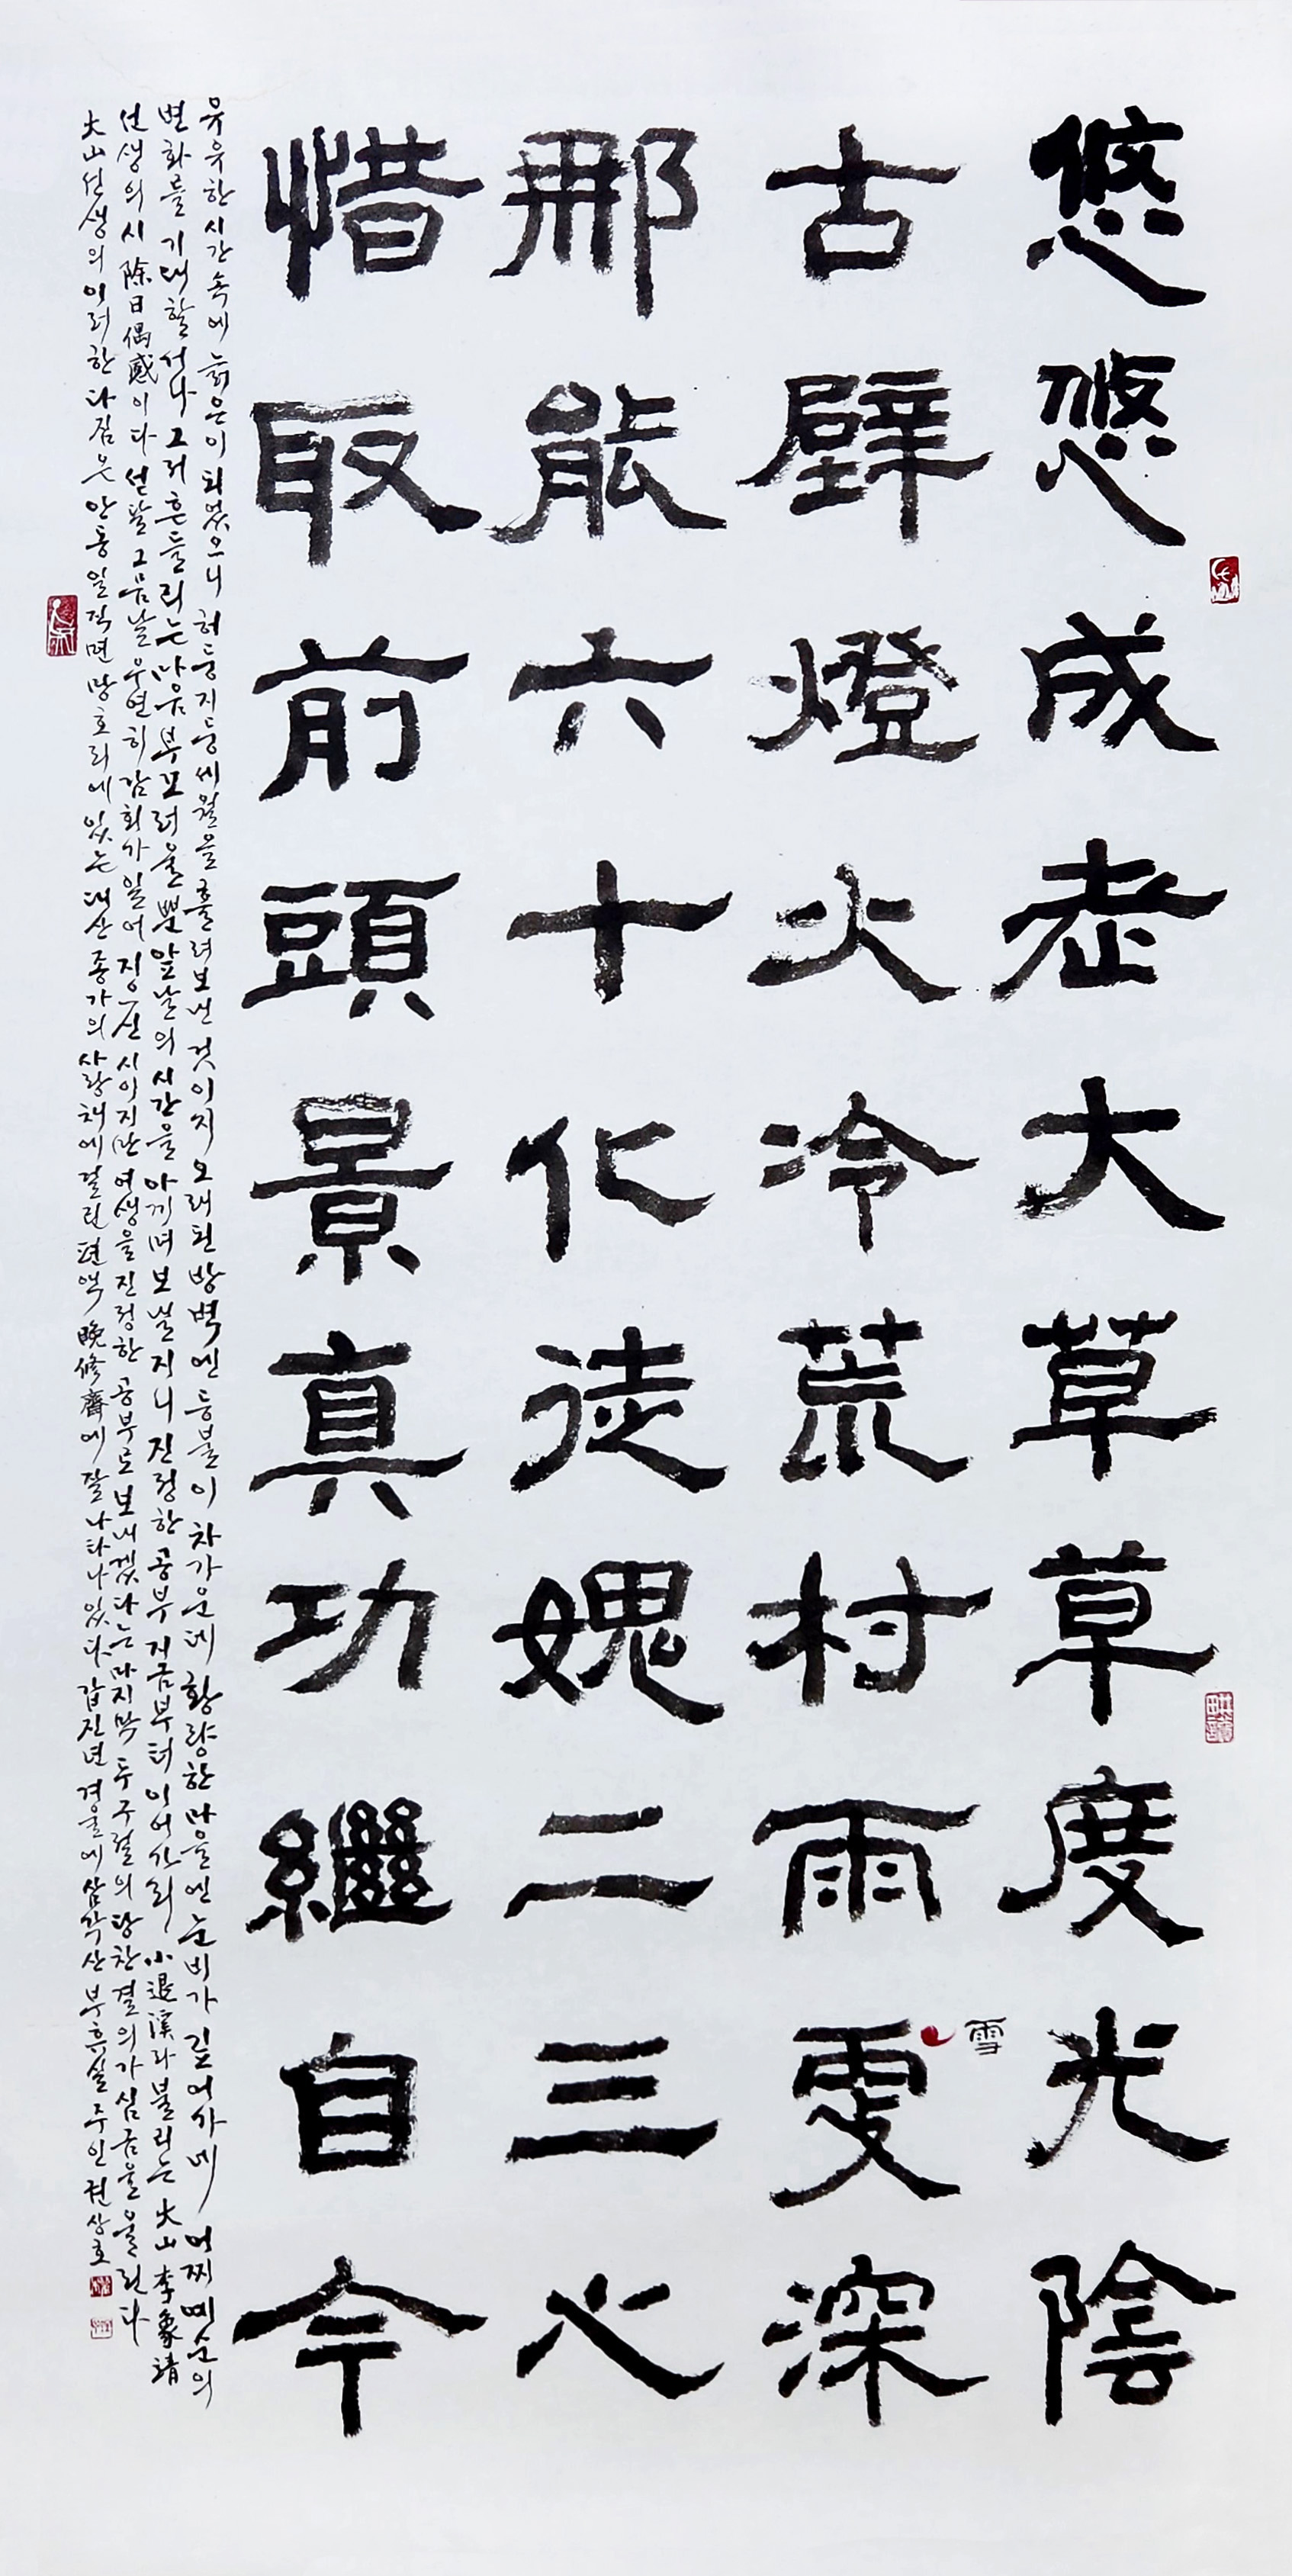 悠悠成老大草草度光陰
古壁燈火冷荒村雨更深
雪
那能六十化徒媿二三心
惜取前頭景真功繼自今
유유한 시간 속에 늙은이 되었으니 허둥지둥 세월을 흘려보낸 것이지 오래된 방벽엔 등불이 차가운데 황량한 마을엔 눈비가 깊어가네 어찌 예순의
변화를 기대할 서냐 그저 흔들리는 마음 부끄러울 뿐 앞날의 시간을 아끼며 보낼지니 진정한 공부 지금부터 이어가리 小退溪라 불리는 大山 李象靖
선생의 시 除日偶感이다 섣달 그믐날 우연히 감회가 일어 지으신 시이지만 여생을 진정한 공부로 보내겠다는 마지막 두 구절의 당찬 결의가 심금을 울린다
大山선생의 이러한 다짐은 안동 일직면 망호리에 있는 대산종가의 사랑채에 걸린 편액 晩修齋에 잘 나타나 있다 갑진년 겨울에 삼각산 부휴실 주인 권상호